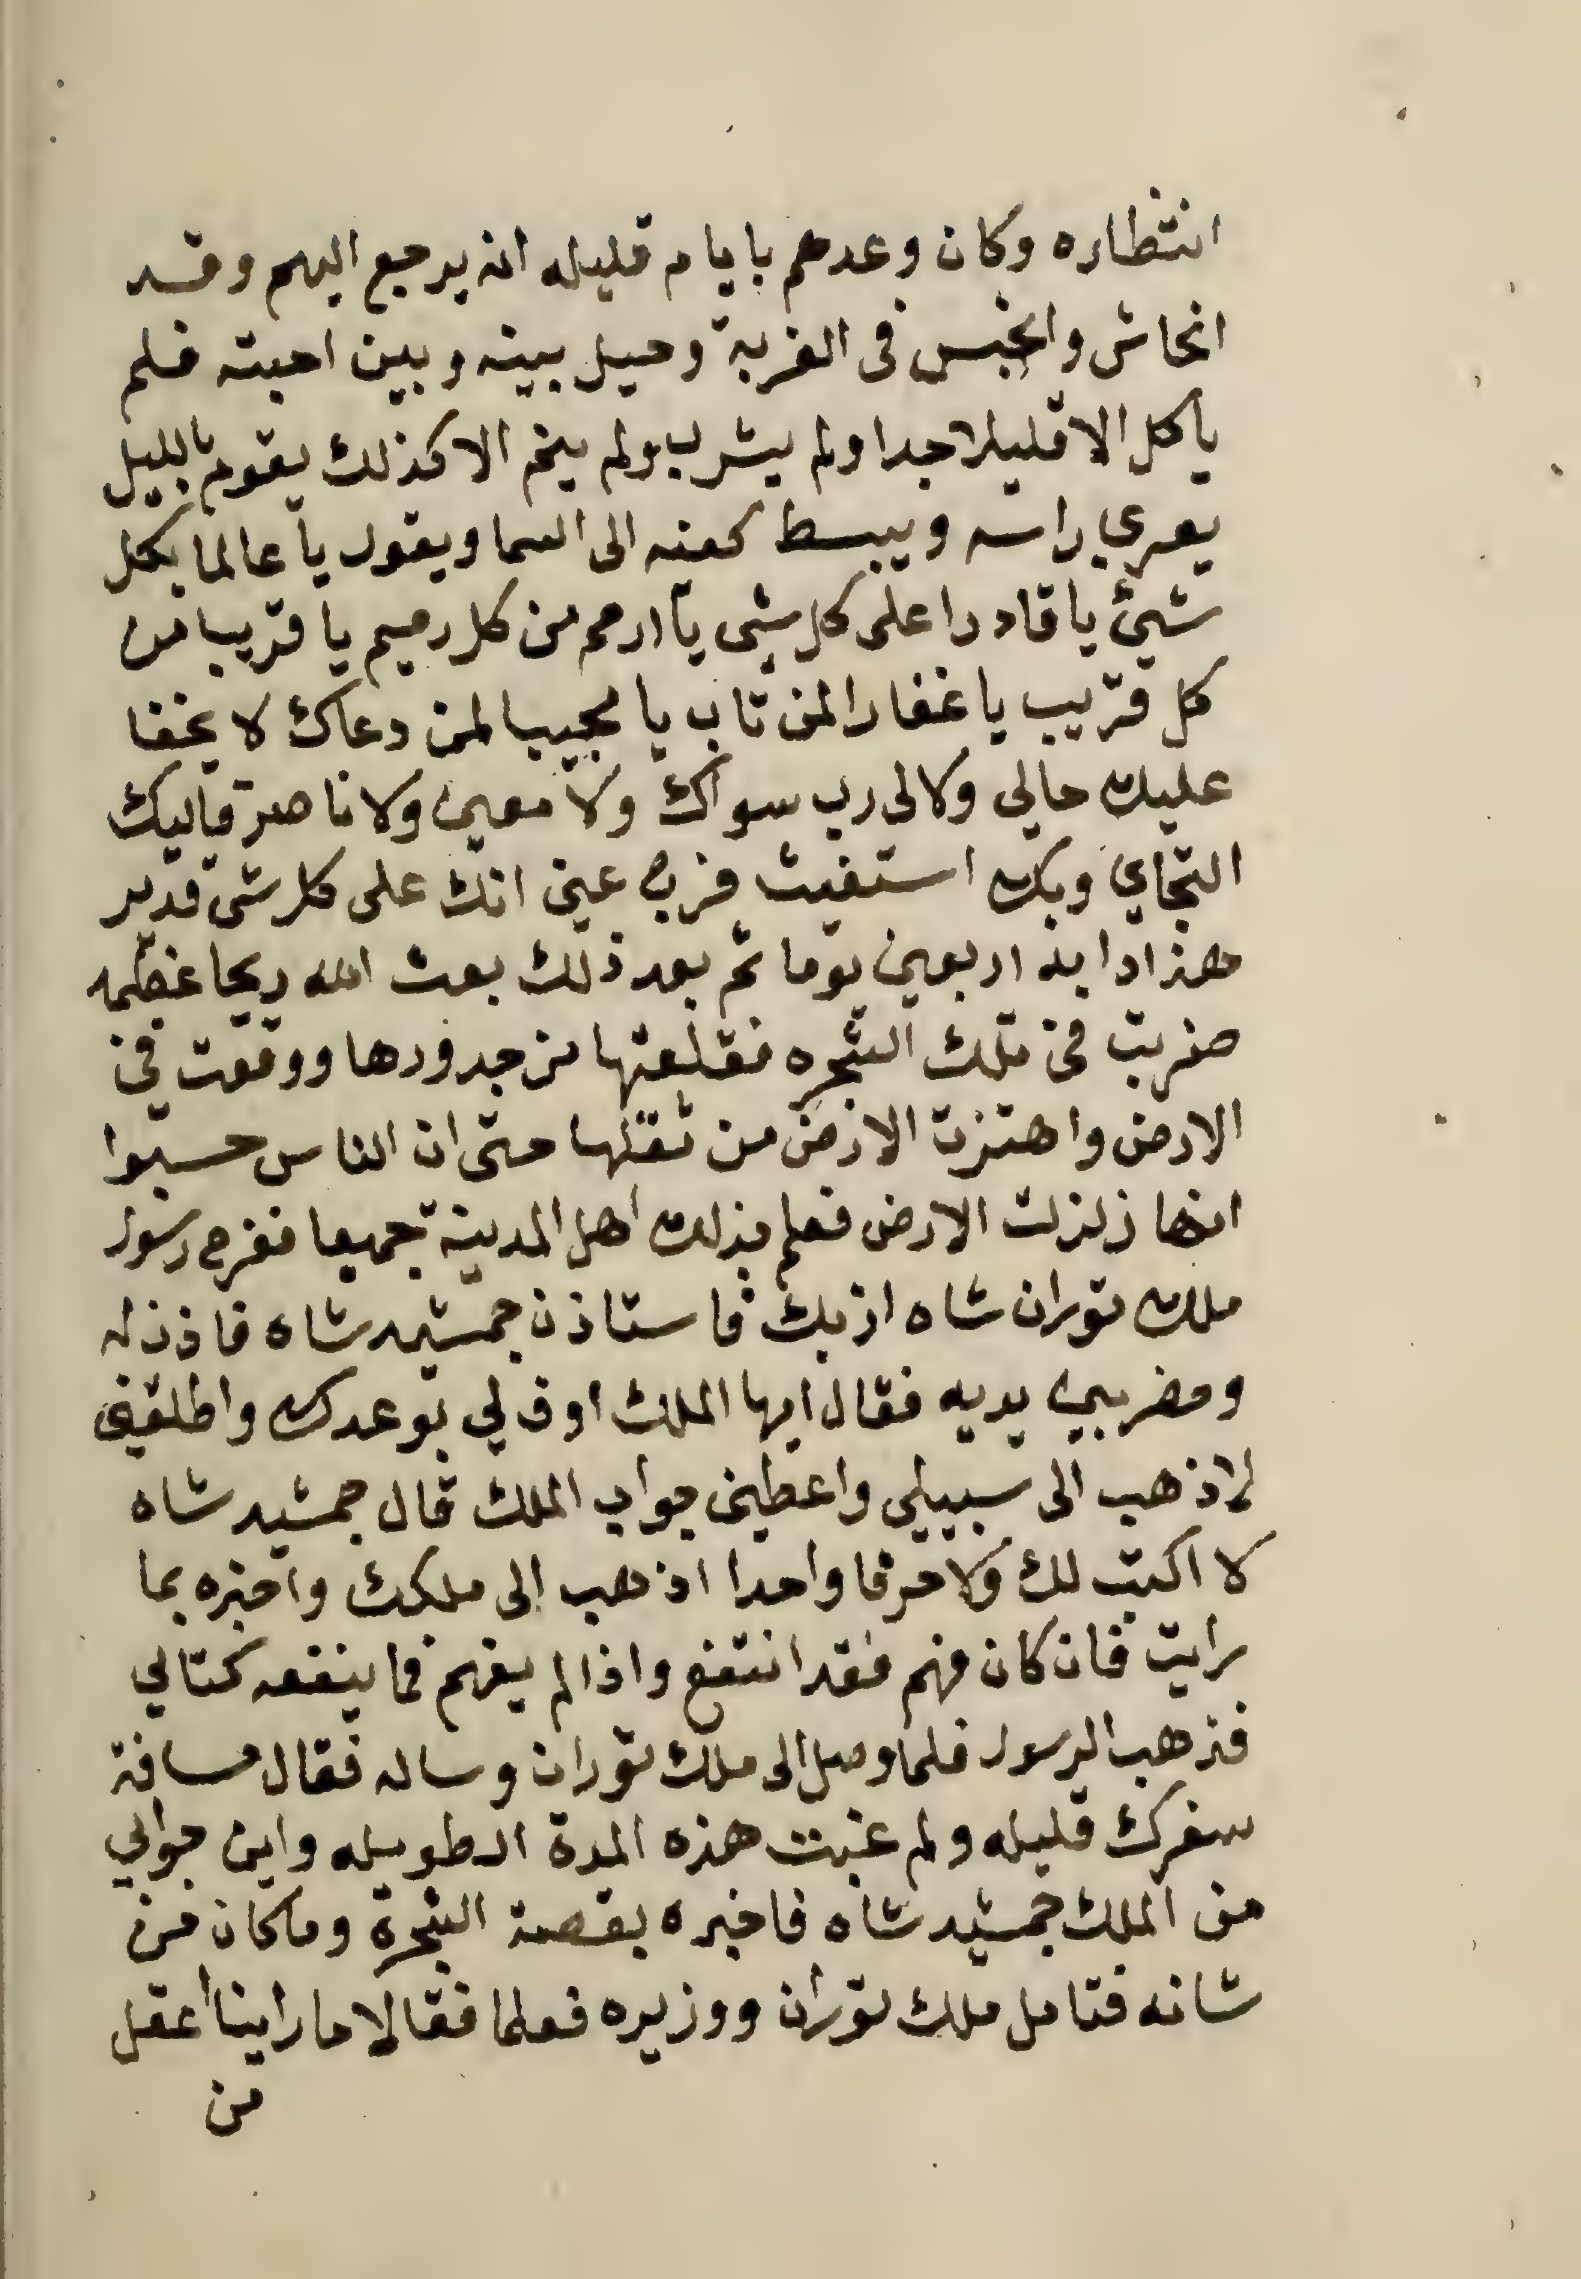 انتظاره وكان وعدهم بايام قليله انه يرجع اليهم وقد
انحاش وانحبس فى الغربة وحيل بينه وبين احبته فلم
ياكل الا قليلا جدا ولم يشرب ولم ينم الا كذلك يقوم بالليل
يعري راسه ويبسط كفيه الى السما ويقول يا عالما بكل
شيئ يا قادرا على كل شى يا ارحم من كل رحيم يا قريبا من
كل قريب يا غفارا لمن تاب يا مجيبا لمن دعاك لا يخفا
عليك حالي ولا لى رب سواك ولا معين ولا ناصر فاليك
التجاي وبك استغيث فرج عني انك على كل شى قدير
هذا دابه اربعين يوما ثم بعد ذلك بعث الله ريحا عظيمه
ضربت في تلك الشجره فقلعتها من جدورها ووقعت في
الارض واهتزت الارض من ثقلها حتى ان الناس حسبوا
انها زلزلت الارض فعلم بذلك اهل المدينة جميعا ففرح رسول
ملك توران شاه ازبك فاستاذن جمشيد شاه فاذن له
وحضر بين يديه فقال ايها الملك اوف لي بوعدك واطلقني
لاذهب الى سبيلي واعطيني جواب الملك قال جمشيد شاه
لا اكتب لك ولا حرفا واحدا اذهب الى ملكك واخبره بما
رايت فان كان فهم فقد انتفع واذا لم يفهم فما ينفعه كتابي
فذهب الرسول فلما وصل الى ملك توران وساله فقال مسافة
سفرك قليله ولم غبت هذه المدة الطويله واين جوابي
من الملك جمشيد شاه فاخبره بقصة الشجرة وما كان من
شانه فتامل ملك توران ووزيره فعلما فقالا ما راينا اعقل
من